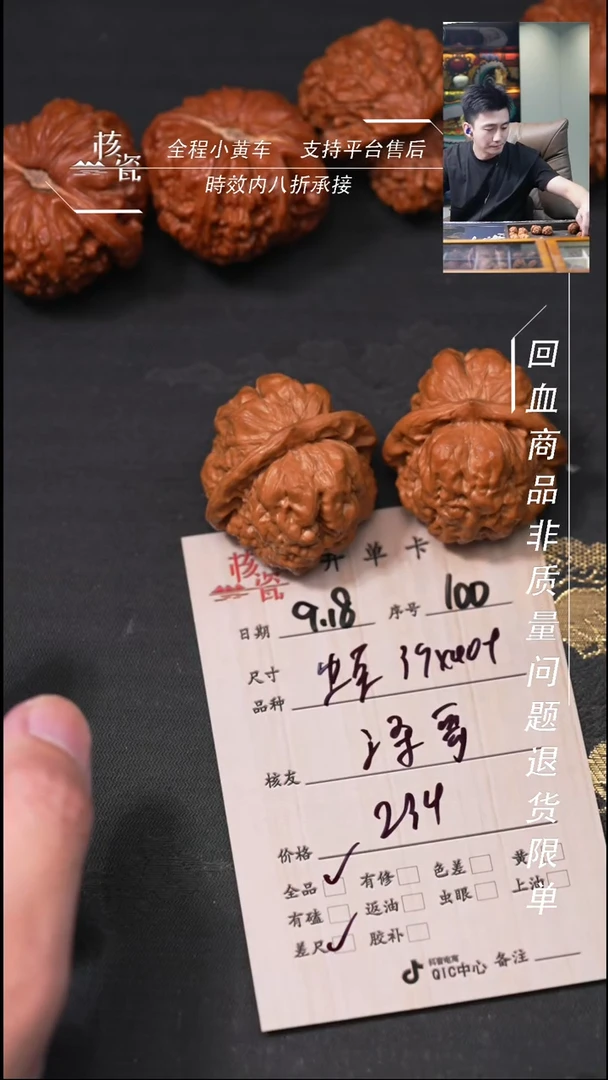 核瓷
全程小黄车 支持平台售后
時效内八折承接
回血商品非质量问题退货限单
核瓷 开单卡
日期 9.18 序号 100
尺寸
品种
核友
价格 234
全品 有修 色差 黄
有磕 返油 虫眼 上油
差尺 胶补
抖音电商
QIC中心 备注